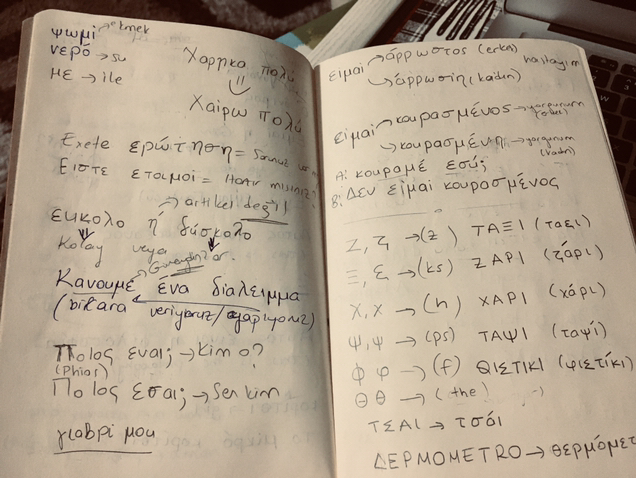 ψωμί → ekmek
νερό → su
με → ile
Χαρηκα πολύ
Χαίρω πολύ
Exete ερώτηση = Sorunuz
Ειστε ετοιμοι = Hazır mısınız?
→ artikel değil
ευκολο ή δύσκολο
Kolay veya
Κανουμε ένα διαλειμμα
(bi kara veriyoruz/yapıyoruz)
Ποιος εναι; → Kim o?
(Phios)
Ποιος εσαι; → Sen kim
γιαβρί μου
ειμαι → άρρωστος (erkek) hastayım
→ άρρωστη (kadın)
είμαι → κουρασμένος → yorgunum (erkek)
→ κουρασμένη → yorgunum (kadın)
A: κουραμέ εσύ;
B: Δεν είμαι κουρασμένος
Ζ, ζ → (z) ΤΑΞΙ (ταξι)
Ξ, ξ → (ks) ΖΑΡΙ (ζάρι)
Χ, χ → (h) ΧΑΡΙ (χάρι)
Ψ, ψ → (ps) ΤΑΨΙ (ταψί)
Φ φ → (f) ΦΙΣΤΙΚΙ (φιστίκι)
Θ θ → (the)
ΤΣΑΙ → τσάι
ΔΕΡΜΟΜΕΤRO → θερμόμετ